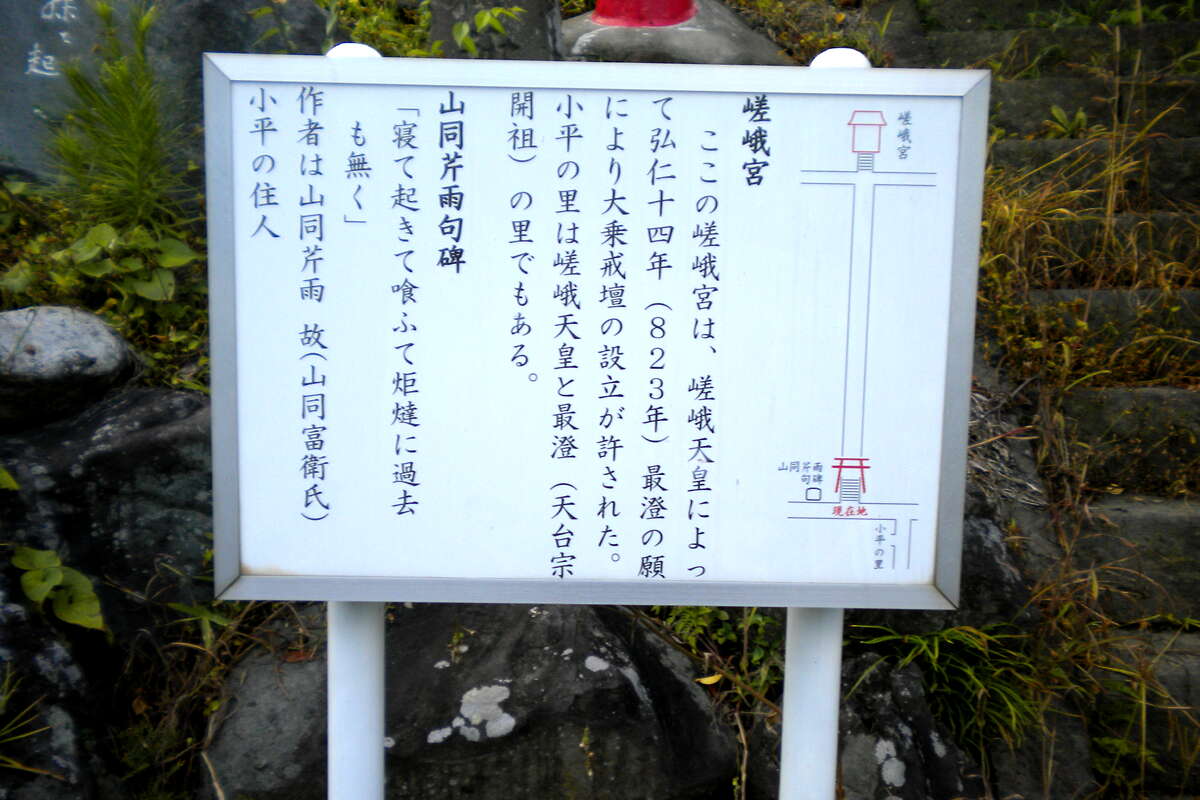 嵯峨宮
山同芹雨
句碑
現在地
小平の里
嵯峨宮
ここの嵯峨宮は、嵯峨天皇によっ
て弘仁十四年（８２３年）最澄の願
により大乗戒壇の設立が許された。
小平の里は嵯峨天皇と最澄（天台宗
開祖）の里でもある。
山同芹雨句碑
「寝て起きて喰ふて炬燵に過去
も無く」
作者は山同芹雨　故（山同富衛氏）
小平の住人
起